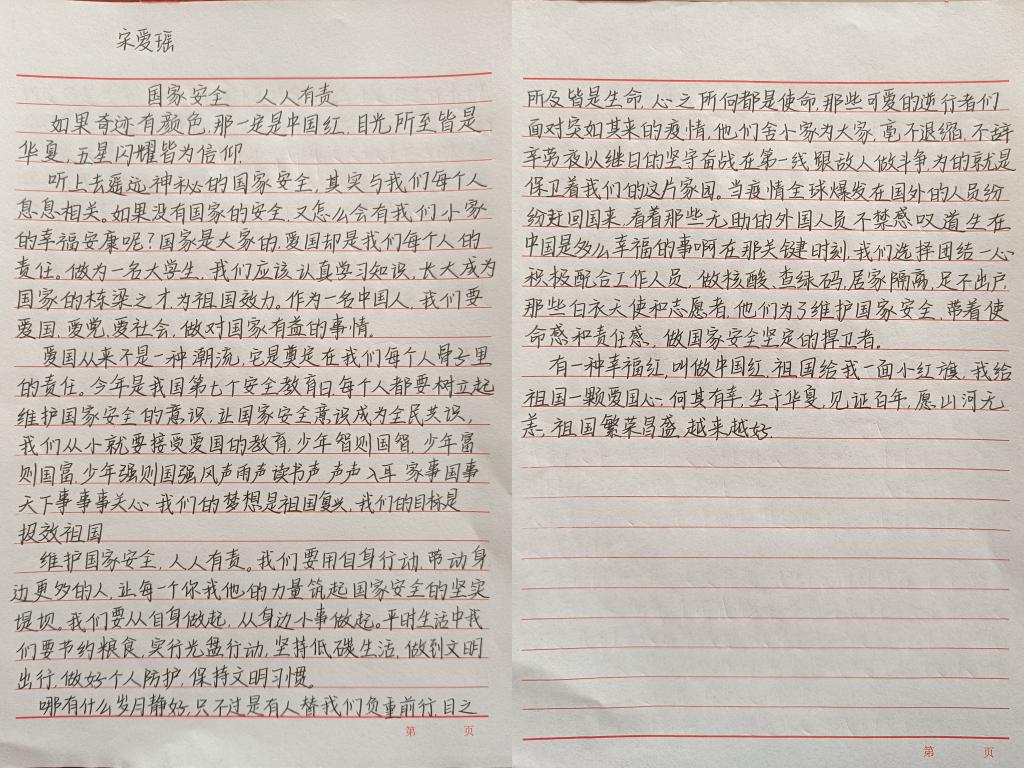 宋爱瑶
国家安全 人人有责
如果奇迹有颜色,那一定是中国红,目光所至皆是
华夏,五星闪耀皆为信仰.
听上去遥远,神秘的国家安全,其实与我们每个人
息息相关。如果没有国家的安全,又怎么会有我们小家
的幸福安康呢?国家是大家的,爱国却是我们每个人的
责任。做为一名大学生,我们应该认真学习知识,长大成为
国家的栋梁之才为祖国效力。作为一名中国人,我们要
爱国,爱党,爱社会,做对国家有益的事情。
爱国从来不是一种潮流,它是奠定在我们每个人骨子里
的责任。今年是我国第七个安全教育日,每个人都要树立起
维护国家安全的意识,让国家安全意识成为全民共识,
我们从小就要接受爱国的教育,少年智则国智,少年富
则国富,少年强则国强,风声雨声读书声 声声入耳 家事国事
天下事事事关心 我们的梦想是祖国复兴,我们的目标是
报效祖国
维护国家安全,人人有责。我们要用自身行动,带动身
边更多的人,让每一个你我他的力量筑起国家安全的坚实
堤坝。我们要从自身做起,从身边小事做起。平时生活中我
们要节约粮食,实行光盘行动,坚持低碳生活,做到文明
出行,做好个人防护,保持文明习惯。
哪有什么岁月静好,只不过是有人替我们负重前行,目之
第 页
所及皆是生命,心之所向都是使命,那些可爱的逆行者们
面对突如其来的疫情,他们舍小家为大家,毫不退缩,不辞
辛劳夜以继日的坚守奋战在第一线,跟敌人做斗争,为的就是
保卫着我们的这片家园。当疫情全球爆发在国外的人员纷
纷赶回国来,看着那些无助的外国人员不禁感叹道,生在
中国是多么幸福的事啊,在那关键时刻,我们选择团结一心
积极配合工作人员,做核酸,查绿码,居家隔离,足不出户,
那些白衣天使和志愿者,他们为了维护国家安全,带着使
命感和责任感,做国家安全坚定的捍卫者。
有一种幸福红,叫做中国红,祖国给我一面小红旗,我给
祖国一颗爱国心,何其有幸,生于华夏,见证百年,愿山河无
恙,祖国繁荣昌盛,越来越好.
第 页